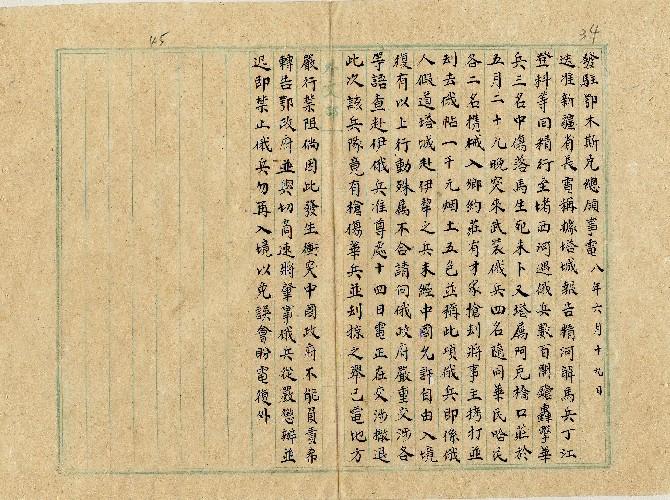 34
45
發駐鄂木斯克總領事電 八年六月十九日
迭准新疆省長電稱據塔城報告精河解馬兵丁江
登科等回精行至堵西河遇俄兵數百開鎗轟擊華
兵三名中傷落馬生死未卜又塔屬阿克橋口莊於
五月二十九晚突來武裝俄兵四名隨同華民哈民
各二名携械入鄉約莊有才家搶刦將事主拷打並
刦去俄帖一千元烟土五包並稱此項俄兵即係俄
人假道塔城赴伊犂之兵未經中國允許自由入境
復有以上行動殊屬不合請向俄政府嚴重交涉各
等語查赴伊俄兵准尊處十四日電正在交涉撤退
此次該兵隊竟有槍傷華兵並刦掠之舉已電地方
嚴行禁阻倘因此發生衝突中國政府不能負責希
轉告鄂政府並與切商速將肇事俄兵從嚴懲辦並
迅即禁止俄兵勿再入境以免誤會盼電復外